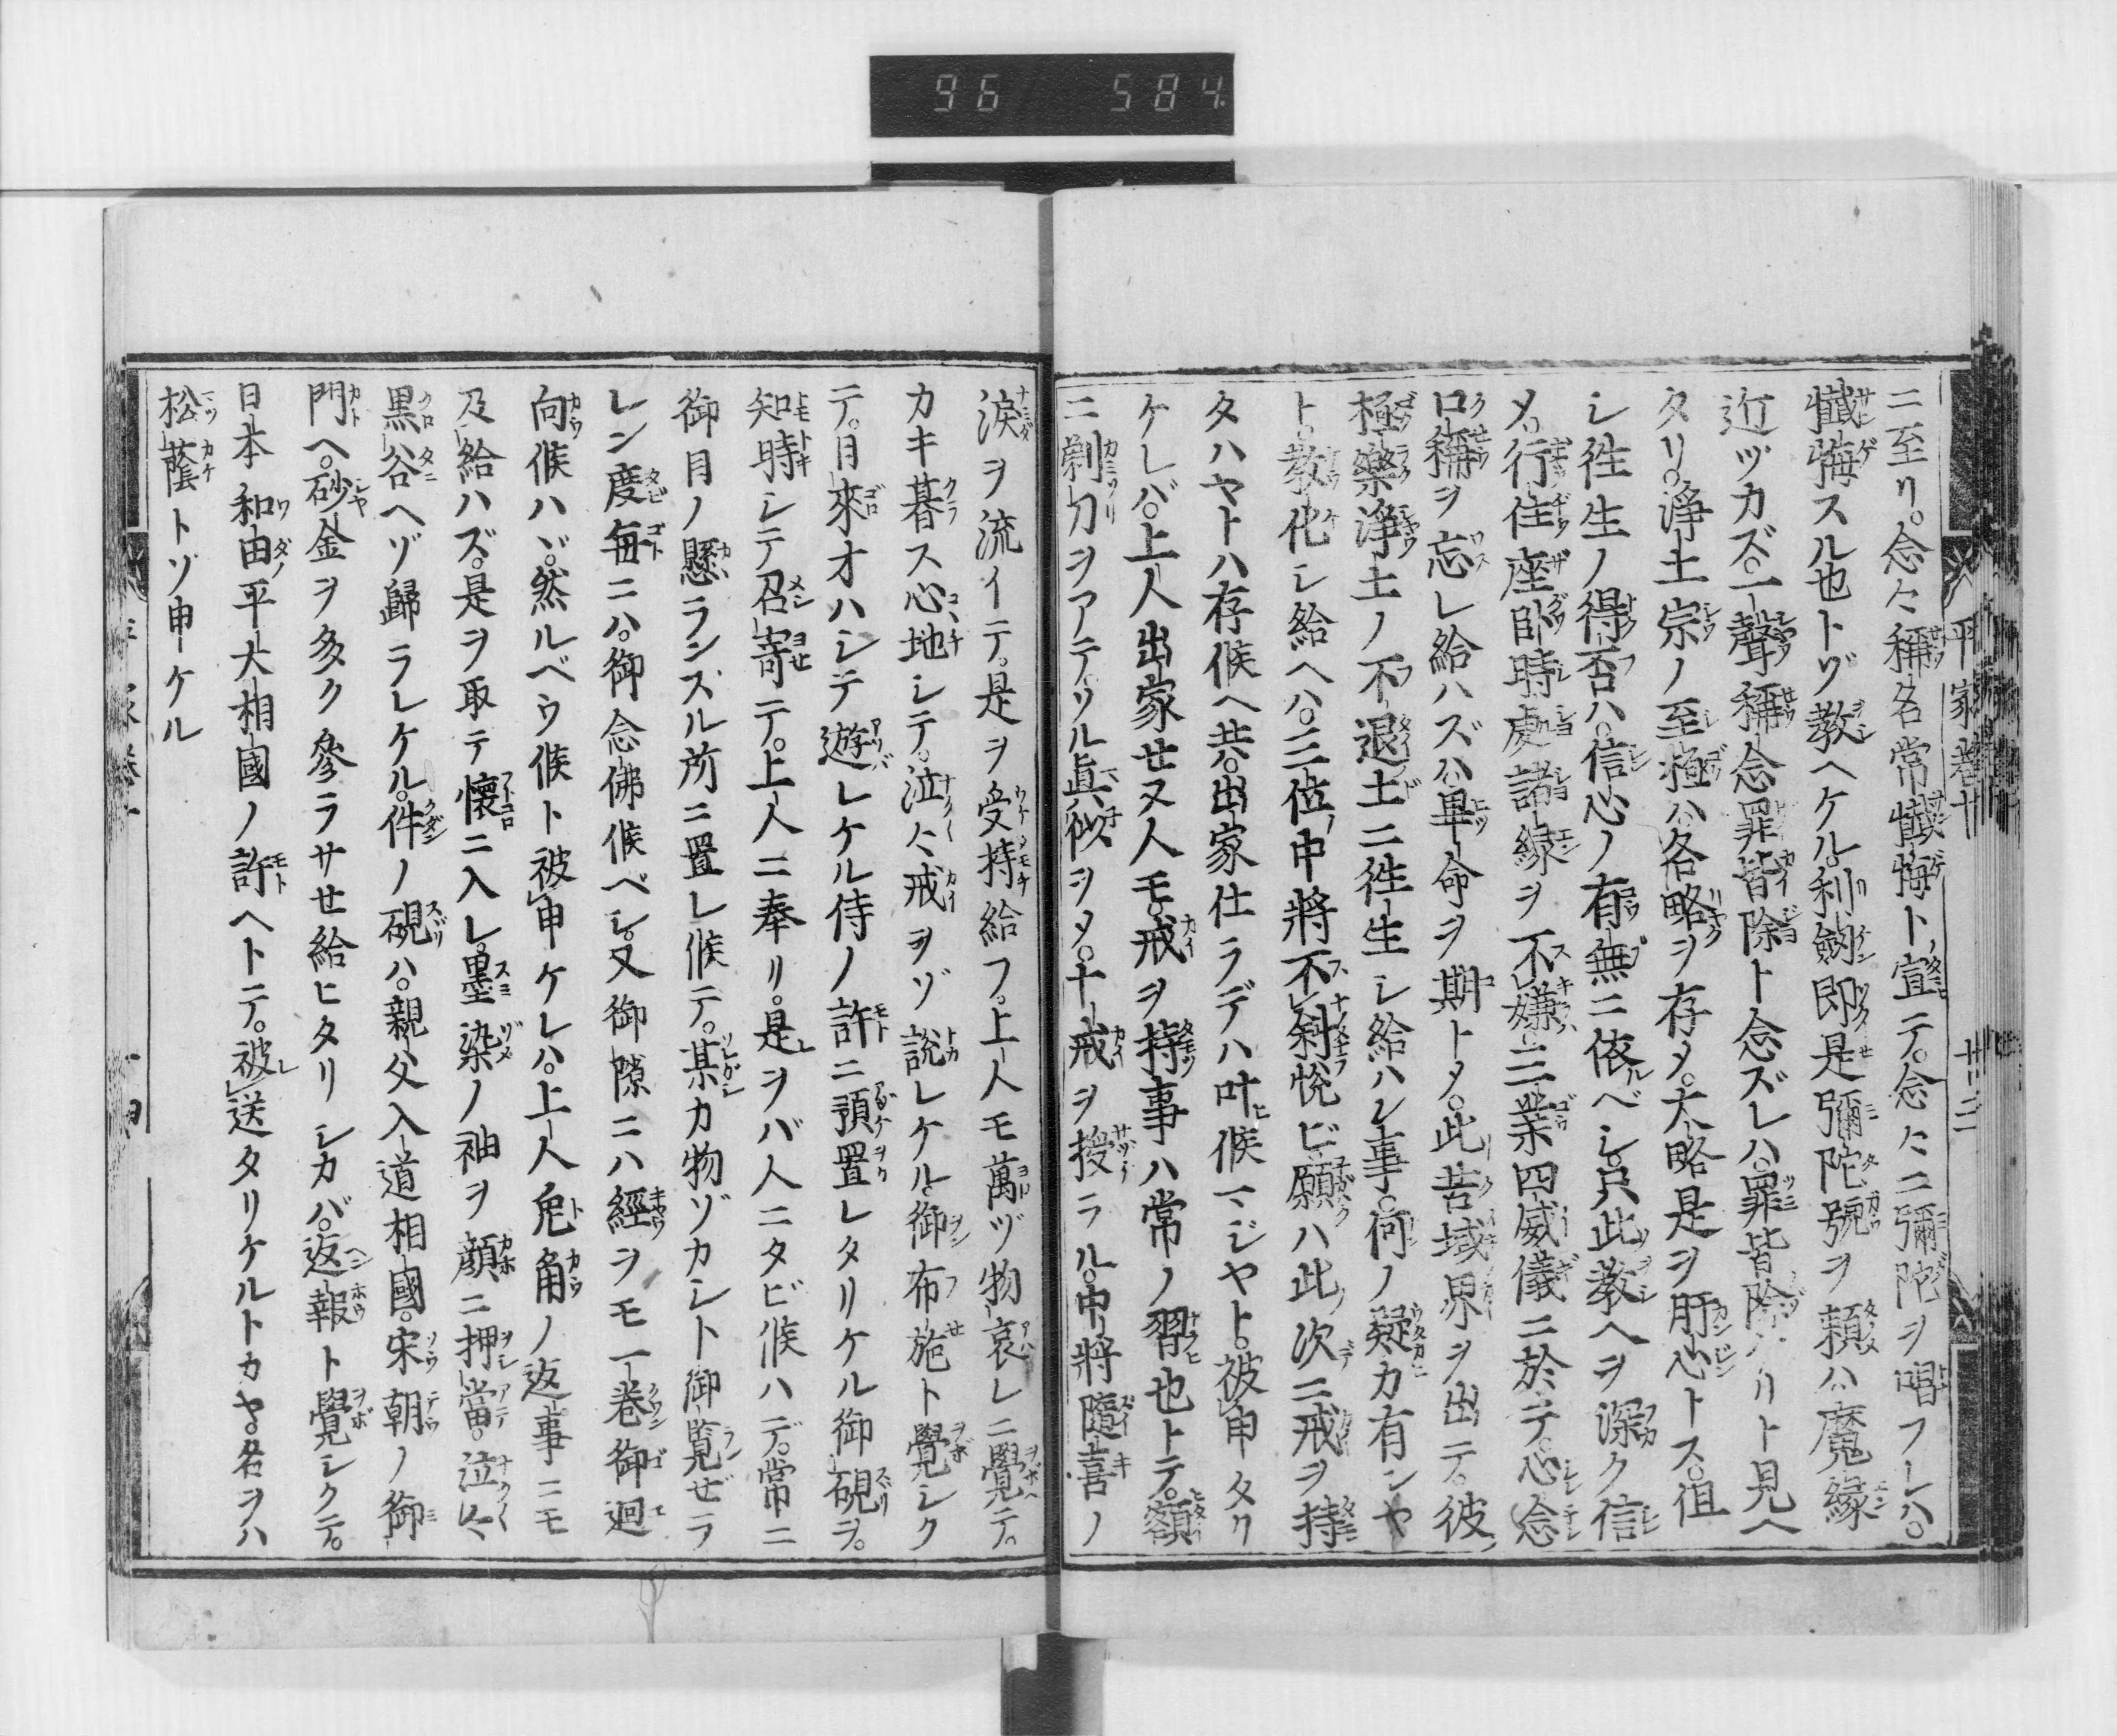 96 584
平家巻十
廿三
ニ至リ。念々稱名常懺悔ト宣テ。念々ニ彌陀ヲ唱フレハ。
懺悔スル也トゾ教ヘケル。利劔即是彌陀號ヲ頼ハ魔縁
近ヅカズ。一聲稱念罪皆除ト念ズレハ。罪皆除ケリト見ヘ
タリ。浄土宗ノ至極ハ各略ヲ存メ。大略是ヲ肝心トス。但
シ徃生ノ得否ハ。信心ノ有無ニ依ベシ。只此教ヘヲ深ク信
メ。行住座卧時處諸縁ヲ不嫌。三業四威儀ニ於テ。心念
口稱ヲ忘レ給ハズハ。畢命ヲ期トメ。此苦域界ヲ出テ。彼
極樂浄土ノ不退土ニ徃生シ給ハン事。何ノ疑カ有ンヤ
ト。教化シ給ヘハ。三位中將不斜悦ビ。願ハ此次ニ戒ヲ持
タハヤトハ存候ヘ共。出家仕ラデハ叶候マジヤト。被申タリ
ケレバ。上人出家せヌ人モ。戒ヲ持事ハ常ノ習也トテ。額
ニ剃刀ヲアテ。ソル眞似ヲメ。十戒ヲ授ラル。中將隨喜ノ
涙ヲ流イテ。是ヲ受持給フ。上人モ萬ヅ物哀レニ覺テ。
カキ暮ス心地シテ。泣々戒ヲゾ説レケル。御布施ト覺シク
テ。月來オハシテ遊レケル侍ノ許ニ預置レタリケル御硯ヲ。
知時シテ召寄テ。上人ニ奉リ。是ヲバ人ニタビ候ハデ。常ニ
御目ノ懸ランズル所ニ置レ候テ。某カ物ゾカシト御覧ぜラ
レン度毎ニハ。御念佛候ベシ。又御隙ニハ經ヲモ一巻御廻
向候ハヾ。然ルベウ候ト被申ケレハ。上人兎角ノ返事ニモ
及給ハズ。是ヲ取テ懐ニ入レ。墨染ノ袖ヲ顔ニ押當。泣々
黒谷ヘゾ歸ラレケル。件ノ硯ハ。親父入道相國。宋朝ノ御
門ヘ。砂金ヲ多ク參ラサせ給ヒタリシカバ。返報ト覺シクテ。
日本和田平大相國ノ許ヘトテ。被送タリケルトカヤ。名ヲハ
松蔭トゾ申ケル